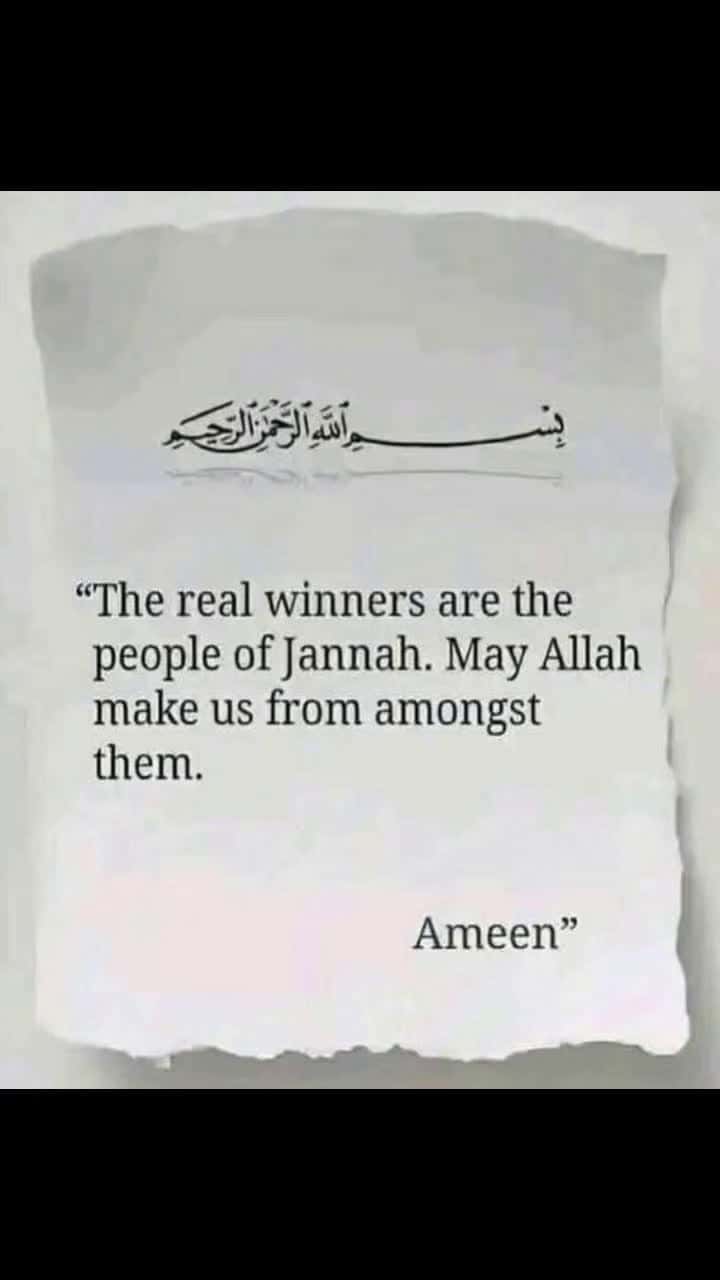 بِسْمِ ٱللَّهِ ٱلرَّحْمَٰنِ ٱلرَّحِيمِ
“The real winners are the
people of Jannah. May Allah
make us from amongst
them.
Ameen”